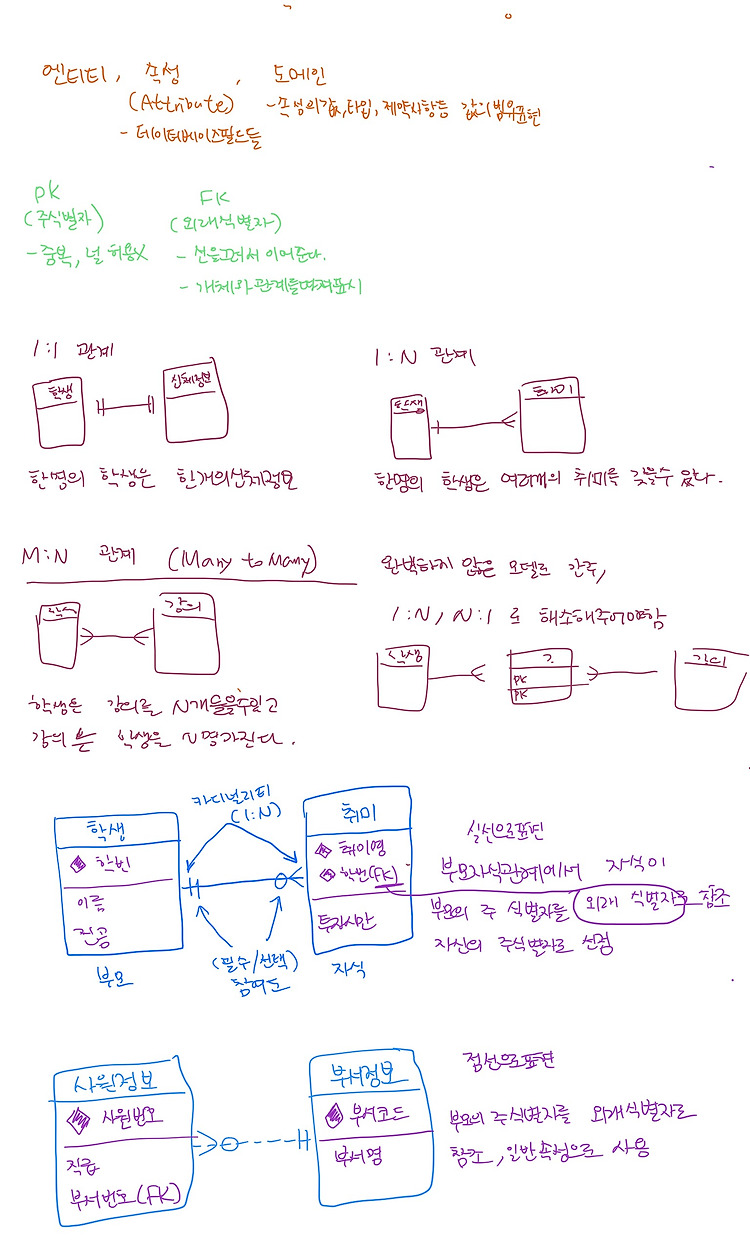 엔티티, 속성, 도메인
(Attribute) - 속성의 값, 타입, 제약사항등 값의 범위 표현
- 데이터베이스필드들
PK FK
(주식별자) (외래식별자)
- 중복, 널 허용X - 선을그려서 이어준다.
- 개체와 관계를 표시
1:1 관계
학생 신체정보
한명의 학생은 한개의신체정보
1:N 관계
학생 취미
한명의 학생은 여러개의 취미를 갖을수 있다.
M:N 관계 (Many to Many)
학생 강의
학생은 강의를 N개 들을수있고
강의는 학생을 N명가진다.
완벽하지 않은 모델로 간주,
1:N, N:1 로 해소해주어야함
학생 ? 강의
PK
PK
카디널리티
(1:N)
학생
학번
이름
전공
부모
취미
취미명
학번(FK)
투자시간
자식
(필수/선택)
참여도
실선으로표현
부모자식관계에서 자식이
부모의 주 식별자를 외래 식별자로 참조
자신의 주식별자로 선정
사원정보
사원번호
직급
부서번호(FK)
부서정보
부서코드
부서명
점선으로표현
부모의 주식별자를 외래식별자로
참조, 일반속성으로 사용